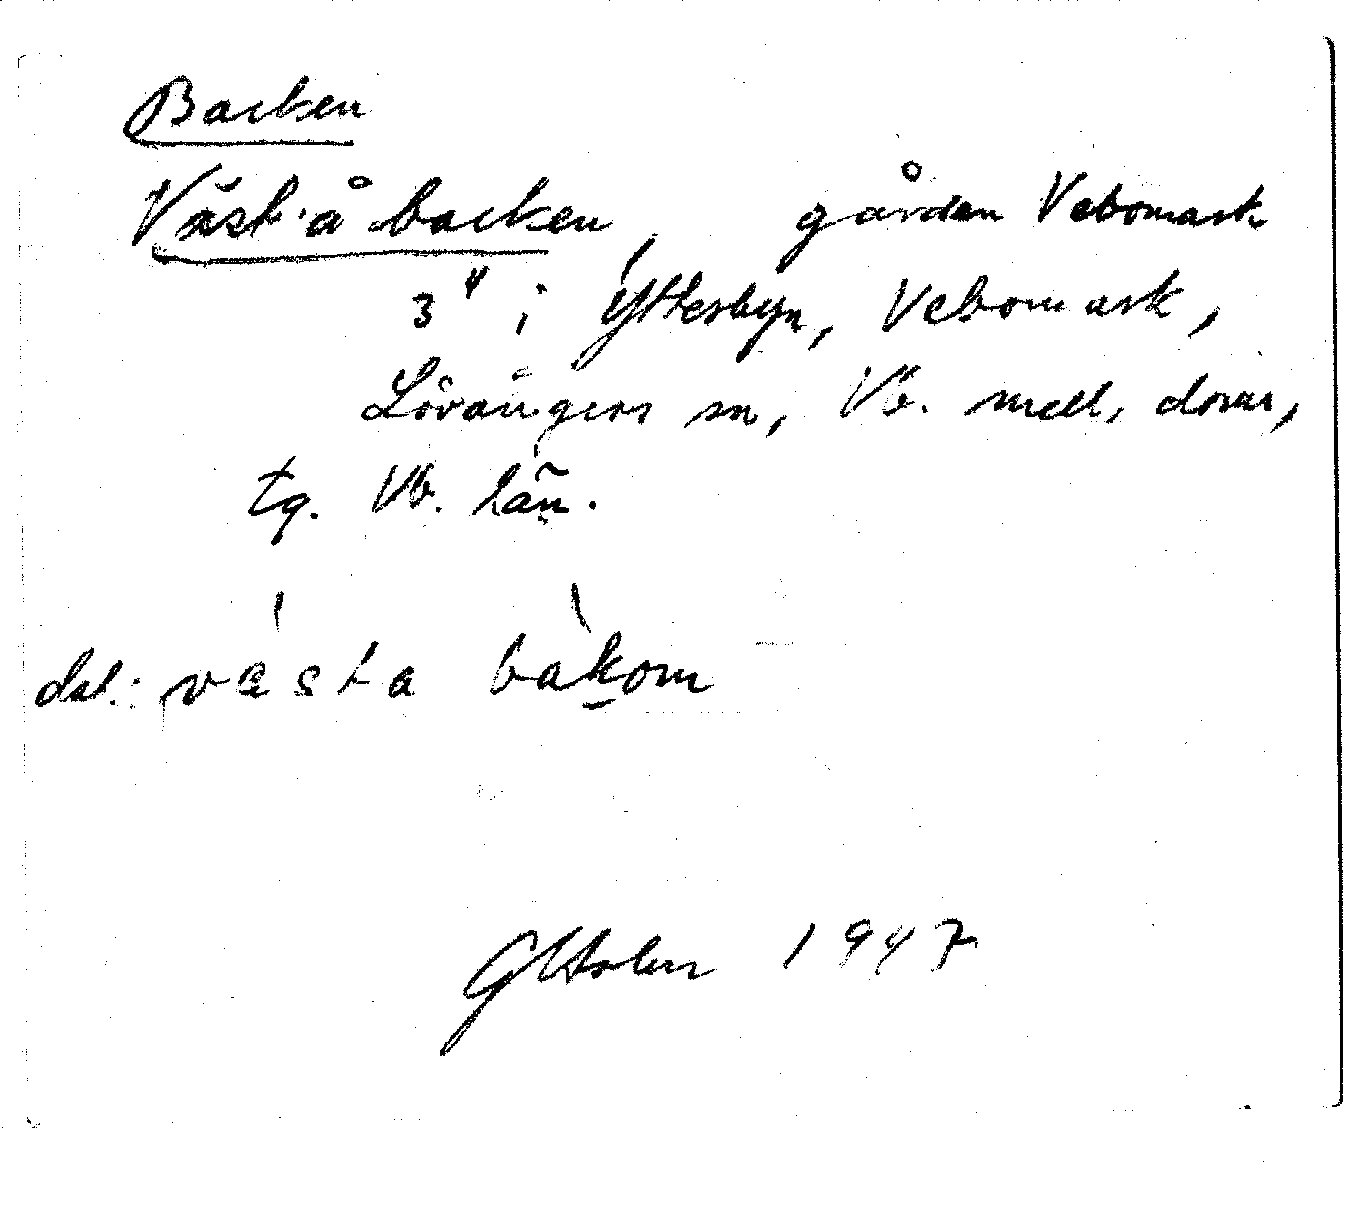 Backen
Väst·å backen, gården Vebomark
3⁴ i Ytterbyn, Vebomark,
Lövångers sn, Vb. mell. doms,
tg. Vb. län.
dal.: vȧsta bakom
GHolm 1947